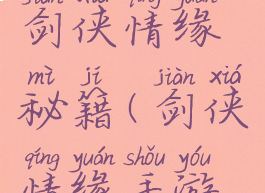 jiàn xiá qíng yuán
剑侠情缘
mì jí jiàn xiá
秘籍(剑侠
qíng yuán shǒu yóu
情缘手游